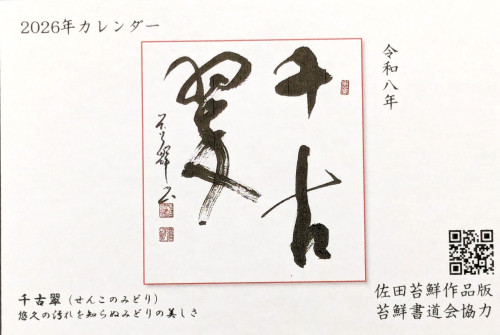 2026年カレンダー
令和八年
千古
翠
千古翠（せんこのみどり）
悠久の汚れを知らぬみどりの美しさ
佐田苔鮮作品版
苔鮮書道会協力